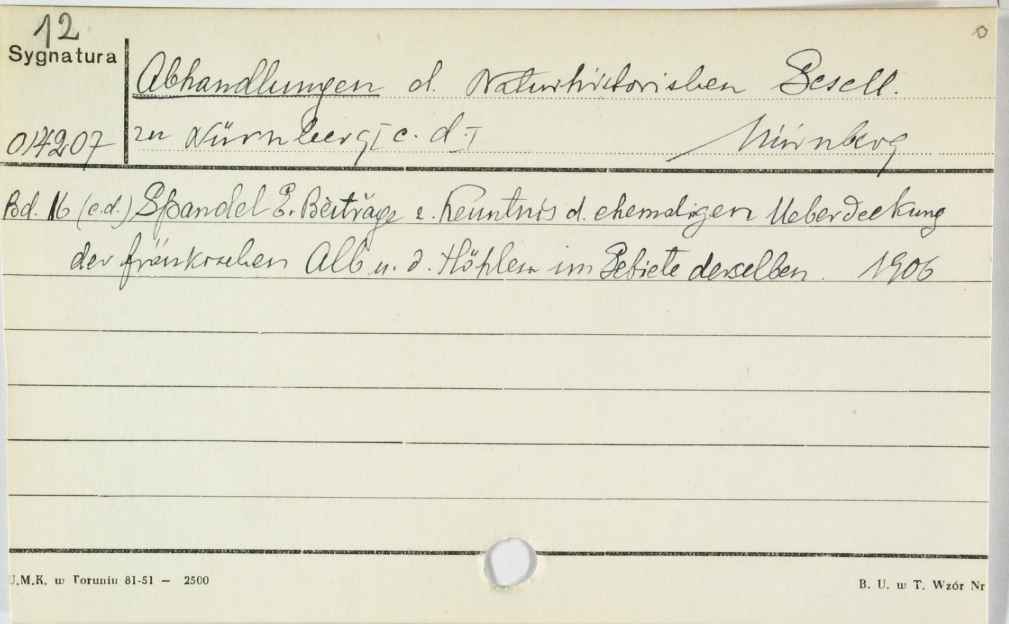 12
Sygnatura
014207
Abhandlungen d. Naturhistorischen Gesell.
zu Nürnberg [c. d.] Nürnberg
Bd. 16 (c.d.) Spandel E. Beiträge z. Kenntnis d. ehemaligen Ueberdeckung
der fränkischen Alb u. d. Höhlen im Gebiete derselben. 1906
U.M.K. w Toruniu 81-51 — 2500
B. U. w T. Wzór Nr